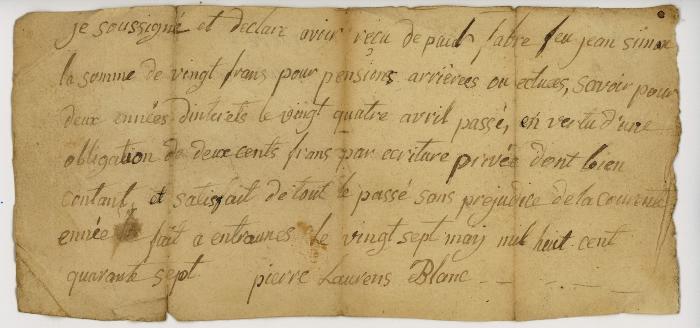 je soussigné et declare avoir reçu de paul fabre feu jean simon
la somme de vingt frans pour pensions arriérées ou echues, savoir pour
deux années d'interets le vingt quatre avril passé, en vertu d'une
obligation de deux cents frans par ecriture privée dont bien
contant, et satisfait de tout le passé sans prejudice de la courente
année fait a entraunes le vingt sept may mil huit cent
quarante sept pierre Laurens Blanc